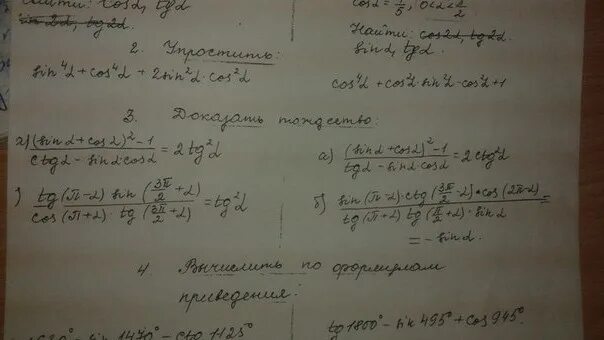 Найти: cosα, tgα
sin 2α, tg2α.
cosα = 1/5, 0<α<π/2
Найти: cos2α, tg2α.
sinα, tgα.
2. Упростить:
sin⁴α + cos⁴α + 2sin²α·cos²α
cos⁴α + cos²α·sin²α - cos²α + 1
3. Доказать тождество:
а) ((sinα + cosα)² - 1)/(ctgα - sinα·cosα) = 2tg²α
а) ((sinα + cosα)² - 1)/(tgα - sinα cosα) = 2ctg²α
) (tg(π-α) sin(3π/2 + α))/(cos(π+α)· tg(3π/2 + α)) = tg²α
б) (sin(π-α)·ctg(3π/2 - α)·cos(2π-α))/(tg(π+α) tg(π/2 + α)·sinα) =
= - sinα.
4 Вычислить по формулам
приведения:
sin 1470° - ctg 1125°
tg 1800° - sin 495° + cos 945°